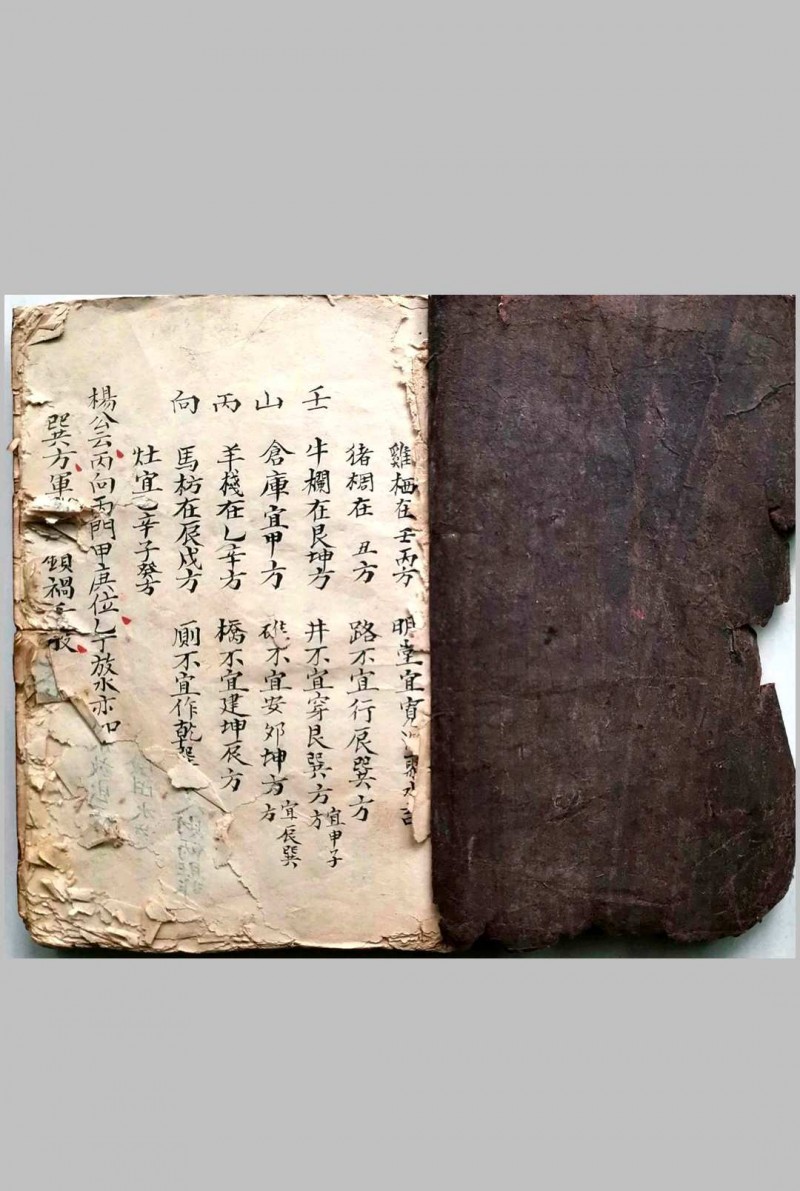 雞栖在壬丙方 明堂宜寬
猪椆在 丑方 路不宜行辰巽方
壬 牛欄在艮坤方 井不宜穿艮巽方方 宜甲子
山 倉庫宜甲方 碓不宜安卯坤方方 宜辰巽
丙 羊棧在乙辛方 橋不宜建坤辰方
向 馬枋在辰戌方 厠不宜作乾巽
灶宜乙辛子癸方
楊公云丙向丙門甲庚位乙丁放水亦如
巽方軍 傾禍 敗